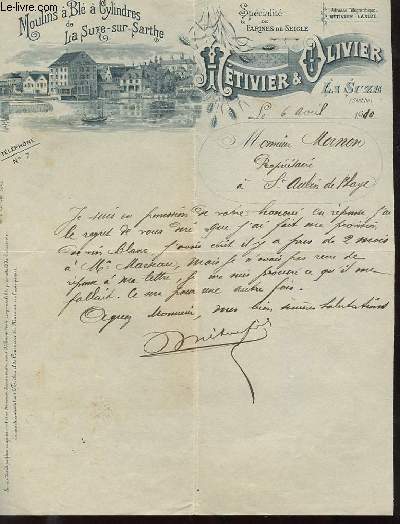 Moulins à Blé à Cylindres
de
La Suze-sur-Sarthe
Spécialité
de
FARINES DE SEIGLE
Adresse Télégraphique:
MÉTIVIER LA SUZE
MÉTIVIER & OLIVIER
LA SUZE
(SARTHE)
TÉLÉPHONE
N° 7
Le 6 avril 1910
Monsieur
Propriétaire
à St Aubin de Blaye
Je suis en possession de votre honoré en réponse j'ai
le regret de vous dire que j'ai fait ma provision
de vin blanc, j'avais écrit il y a près de 2 mois
à Mr mais je n'avais pas reçu de
réponse à ma lettre je me suis procuré ce qui il me
fallait. ce sera pour une autre fois.
Agréez Monsieur, mes bien sincères salutations